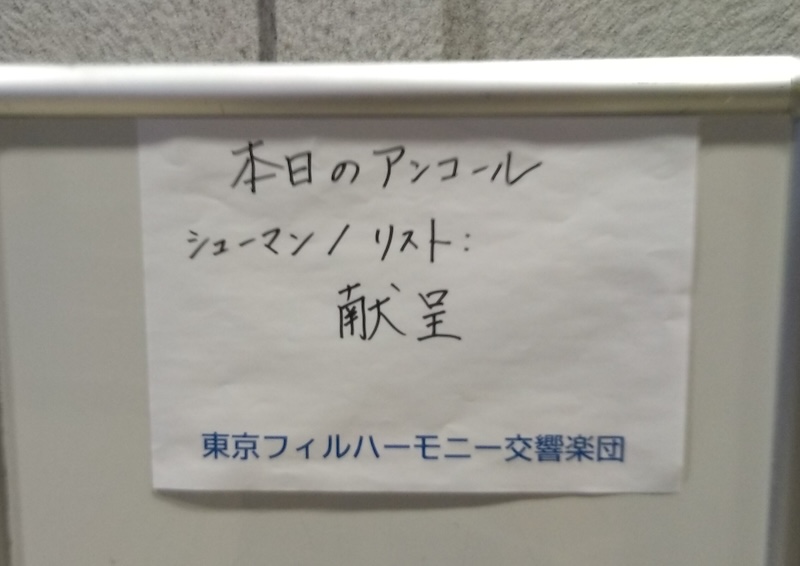 本日のアンコール
シューマン / リスト:
献呈
東京フィルハーモニー交響楽団